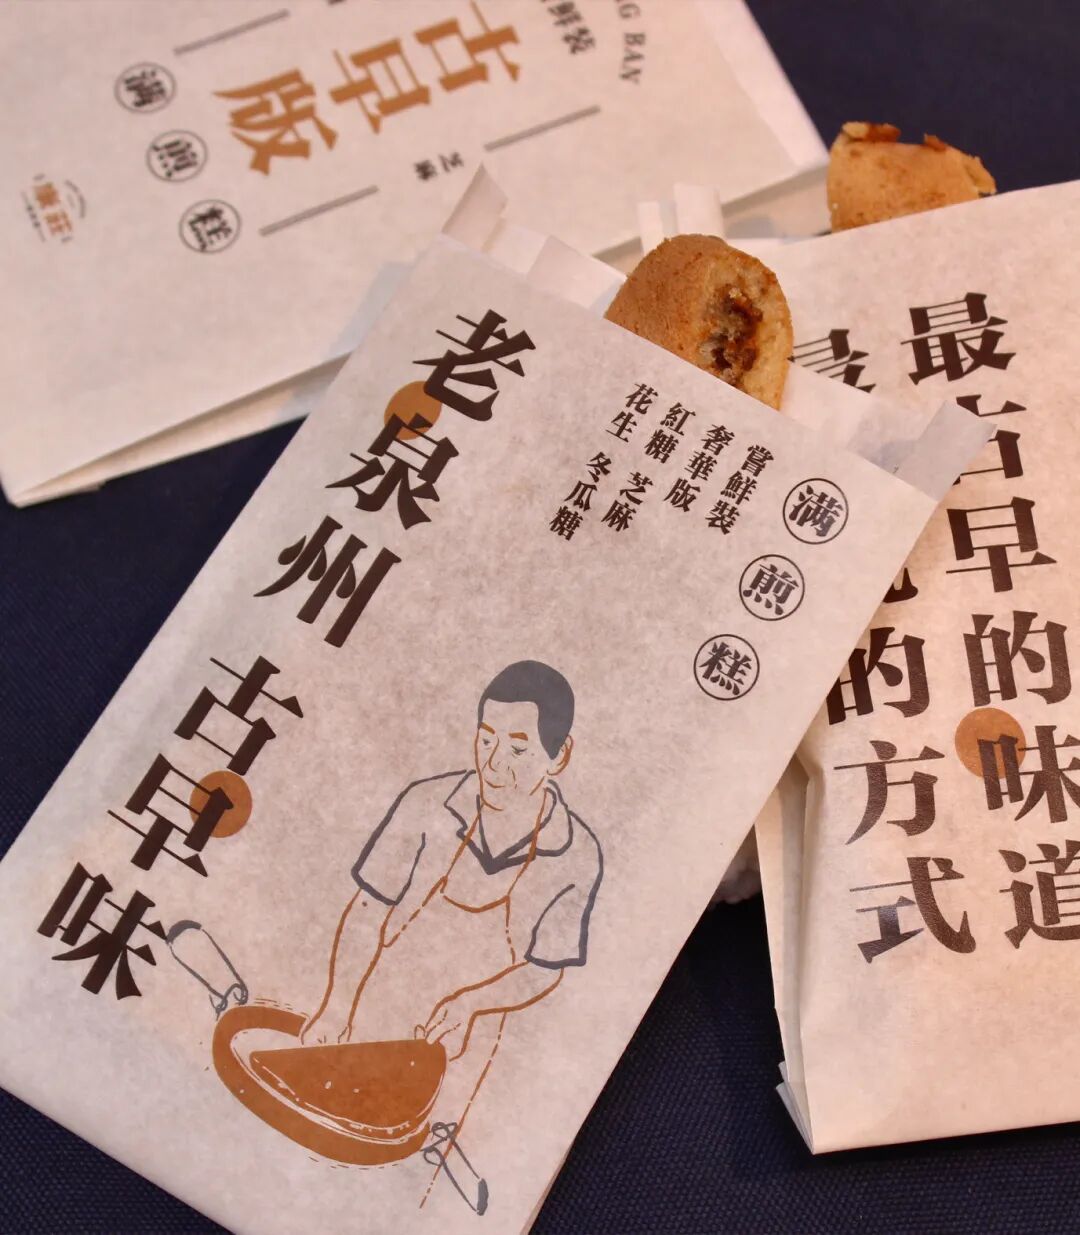 NG BAN
鲜装
古早版
芝麻
满煎糕
老泉州 古早味
满煎糕
嘗鮮裝
奢華版
紅糖 芝麻
花生 冬瓜糖
最古早的味道
的方式